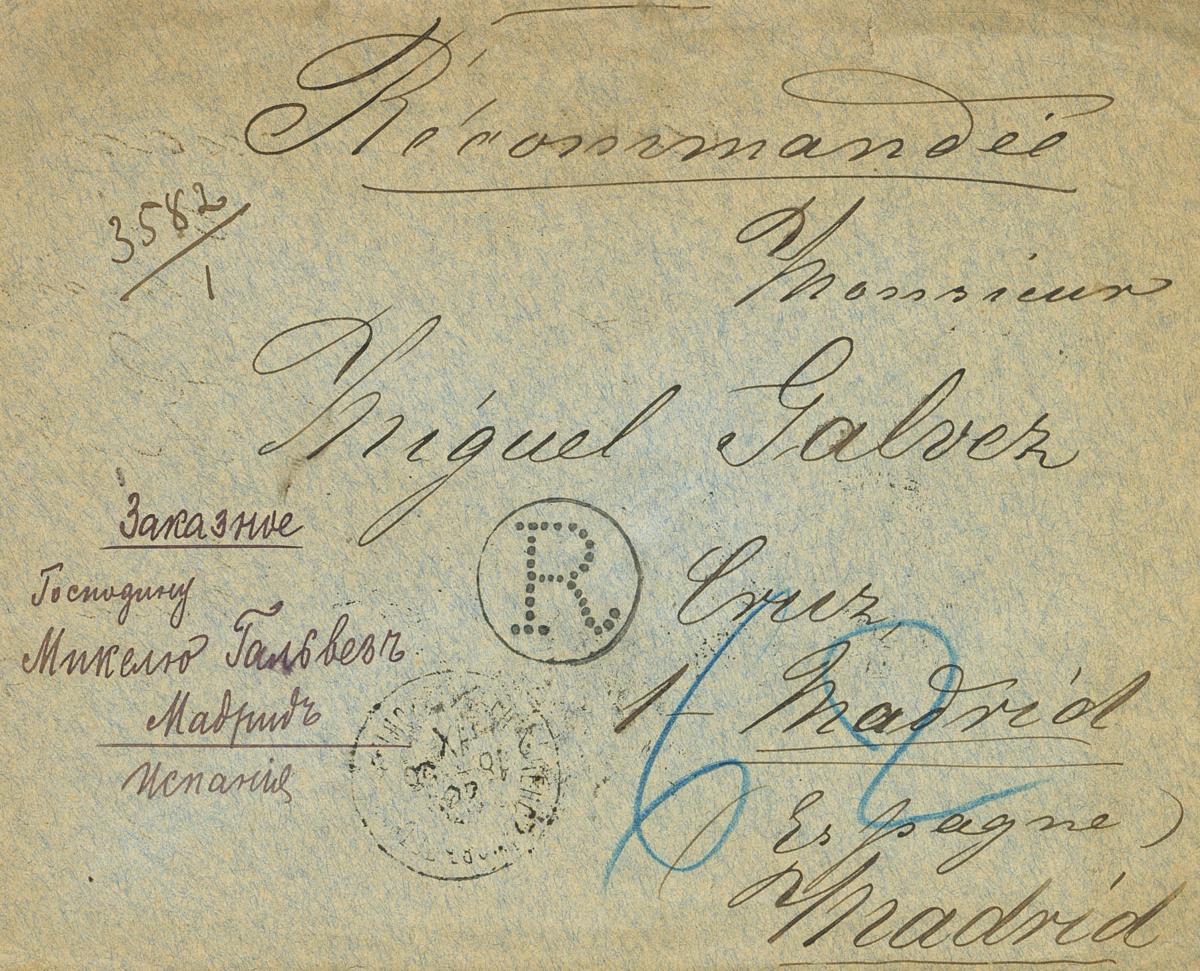 Récommandée
3582/1
Monsieur
Miguel Galvez
Заказное
Господину
Микелю Гальвезъ
Мадридъ
Испанія
R
Cruz,
1 - Madrid
(Espagne)
Madrid
62